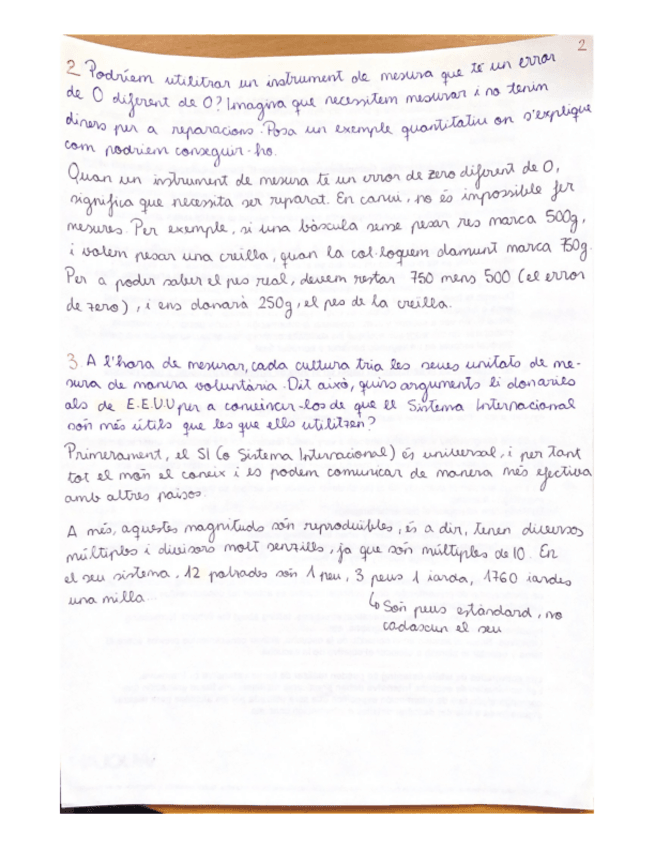 2
2 Podríem utilitzar un instrument de mesura que té un error
de 0 diferent de 0? Imagina que necessitem mesurar i no tenim
diners per a reparacions. Posa un exemple quantitatiu on s'explique
com podriem conseguir-ho.
Quan un instrument de mesura té un error de zero diferent de 0,
significa que necesita ser reparat. En canvi, no és impossible fer
mesures. Per exemple, si una bàscula sense pesar res marca 500g,
i volem pesar una creïlla, quan la col·loquem damunt marca 750g.
Per a poder saber el pes real, devem restar 750 mens 500 (el error
de zero), i ens donarà 250g, el pes de la creïlla.
3. A l'hora de mesurar, cada cultura tria les seues unitats de me-
sura de manera voluntària. Dit això, quins arguments li donaries
als de E.E.U.U per a convincer-los de que el Sistema Internacional
són més útils que les que ells utilitzen?
Primerament, el SI (o Sistema Internacional) és universal, i per tant
tot el món el coneix i es podem comunicar de manera més efectiva
amb altres paisos.
A més, aquestes magnituds són reproduibles, és a dir, tenen diversos
múltiples i divisors molt senzills, ja que són múltiples de 10. En
el seu sistema, 12 polzades són 1 peu, 3 peus 1 iarda, 1760 iardes
una milla...
↳ Són peus estàndard, no
cadascun el seu